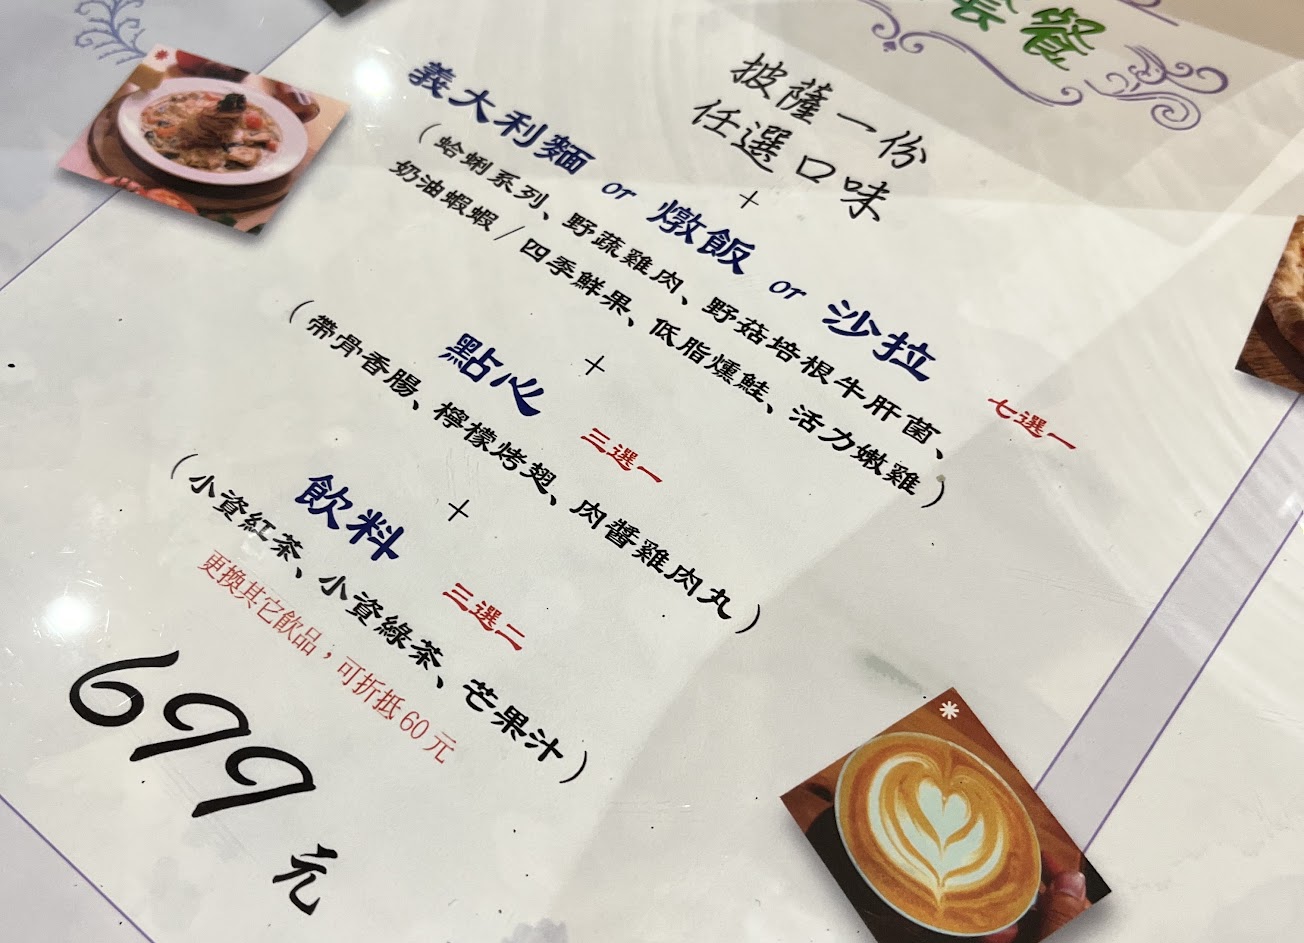 套餐
披薩一份
任選口味
+
義大利麵 or 燉飯 or 沙拉 七選一
(蛤蜊系列、野蔬雞肉、野菇培根牛肝菌、
奶油蝦蝦/四季鮮果、低脂燻鮭、活力嫩雞)
+
點心 三選一
(帶骨香腸、檸檬烤翅、肉醬雞肉丸)
+
飲料 三選二
(小資紅茶、小資綠茶、芒果汁)
更換其它飲品；可折抵60元
699元